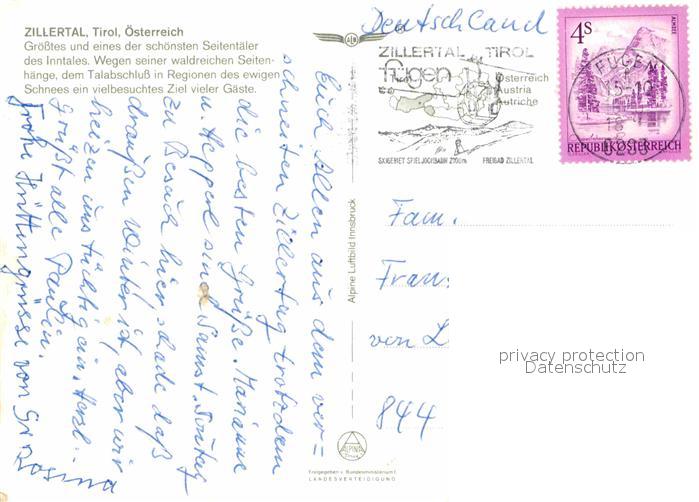 ZILLERTAL, Tirol, Österreich
Größtes und eines der schönsten Seitentäler
des Inntales. Wegen seiner waldreichen Seiten-
hänge, dem Talabschluß in Regionen des ewigen
Schnees ein vielbesuchtes Ziel vieler Gäste.
Euch Allen aus dem ver=
schneiten Zillertag trotzdem
die besten Grüße. Marianne
u. Hepperl sind Samst. Sontag
zu Besuch hier schade daß
draußen Winter ist, aber wir
heizen uns tüchtig ein. Herzl.
Grüßt alle Paulin.
Frohe Hüttengrüsse von
Rosina
Alpine Luftbild Innsbruck
ALPINA
Freigegeben v. Bundesministerium f.
LANDESVERTEIDIGUNG
Deutschland
ZILLERTAL TIROL
Fügen
Österreich
Austria
Autriche
SKIGEBIET SPIELJOCHBAHN 2100m FREIBAD ZILLERTAL
4S
ALMSEE
FÜGEN
REPUBLIK ÖSTERREICH
Fam.
Fran
von L
844
privacy protection
Datenschutz